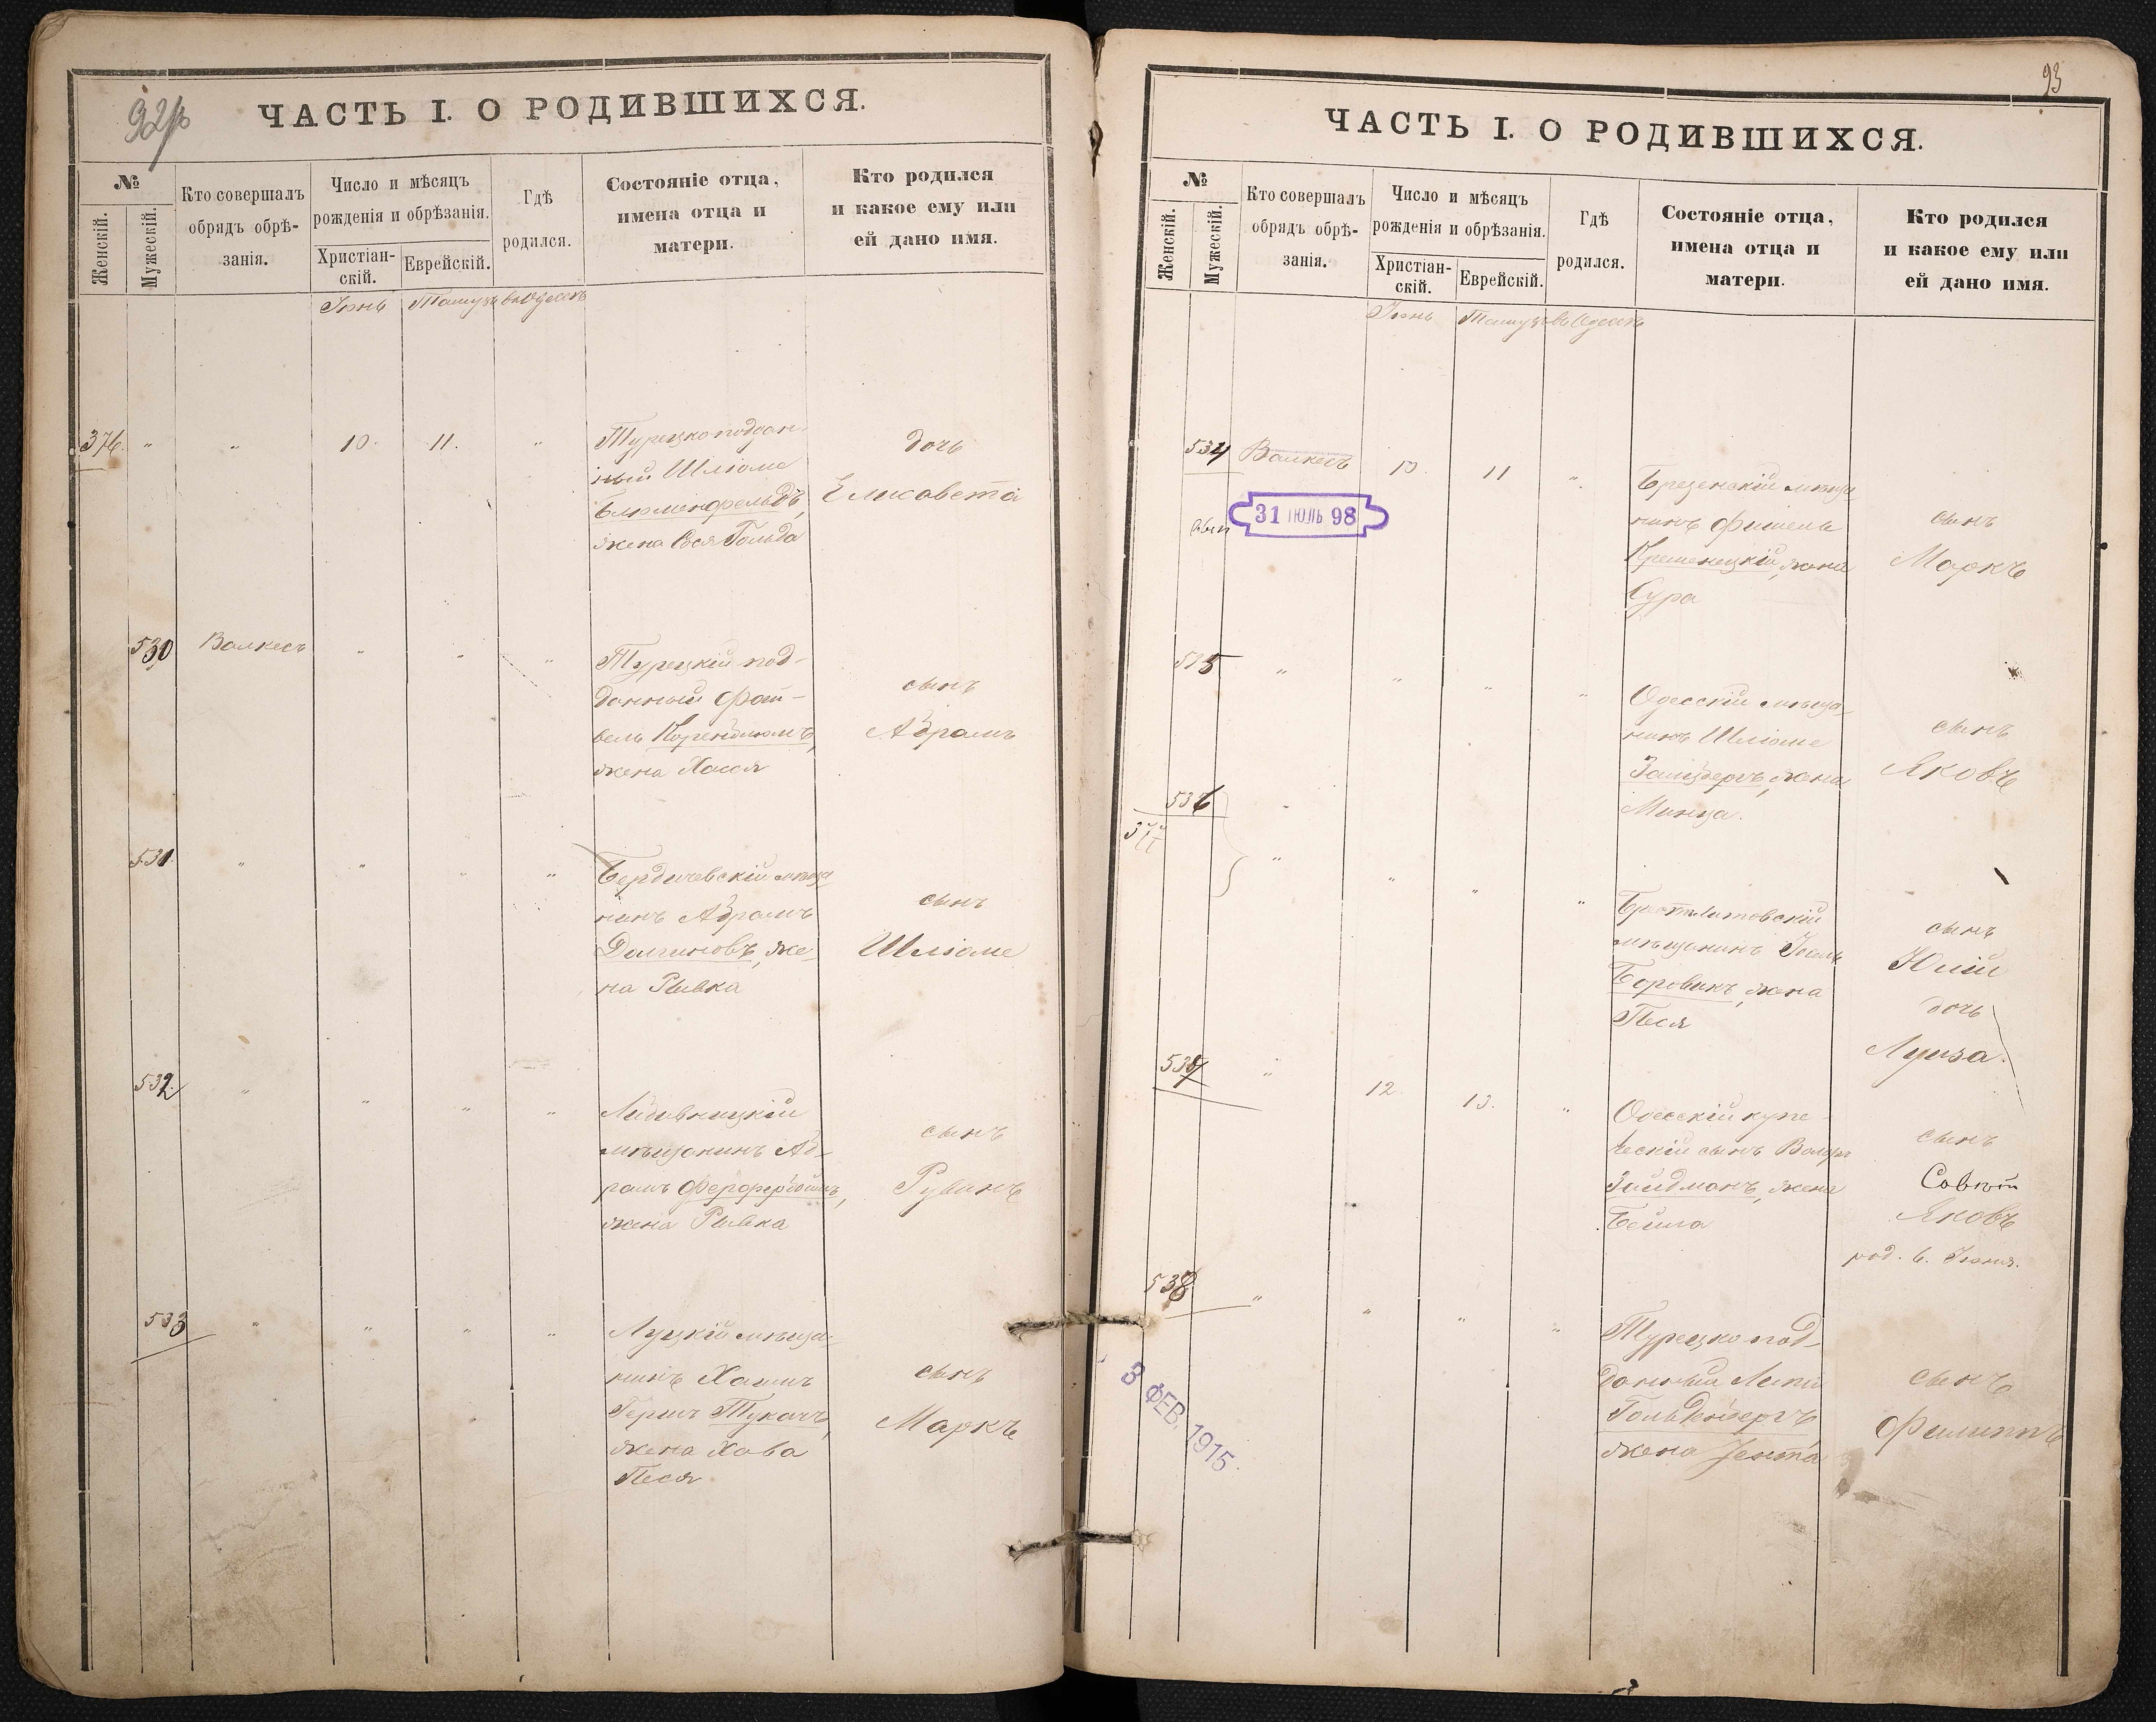 ЧАСТЬ I. О РОДИВШИХСЯ.
№
Женскій.
Мужескій.
Кто совершалъ
обрядъ обрѣ-
занія.
Число и мѣсяцъ
рожденія и обрѣзанія.
Христіан-
скій.
Еврейскій.
Гдѣ
родился.
Состояніе отца,
имена отца и
матери.
Кто родился
и какое ему или
ей дано имя.
Іюнь Тамузъ въ Одессѣ
376 " " 10. 11. "
Турецкоподдан-
ный Шліоме
Блюменфельдъ,
жена Гольда
дочь
Елисавета
530 Валкесъ " " "
Турецкій под-
данный Фай-
вель
жена Хася
сынъ
Абрамъ
531 " " " "
Бердичевскій мѣща
нинъ Абрамъ
Долгиновъ, же-
на Рывка
сынъ
Шліоме
532 " " " "
мѣщанинъ Аб-
рамъ
жена Рывка
сынъ
Рувинъ
533 " " " "
Луцкій мѣща-
нинъ Хаимъ
Гершъ Тукачъ,
жена Хава
Песя
сынъ
Маркъ
93
ЧАСТЬ I. О РОДИВШИХСЯ.
№
Женскій.
Мужескій.
Кто совершалъ
обрядъ обрѣ-
занія.
Число и мѣсяцъ
рожденія и обрѣзанія.
Христіан-
скій.
Еврейскій.
Гдѣ
родился.
Состояніе отца,
имена отца и
матери.
Кто родился
и какое ему или
ей дано имя.
Іюнь Тамузъ въ Одессѣ
534 Валкесъ 10 11 "
31 ІЮЛЬ 98
мѣща
нинъ Фишель
Кременецкій, жена
Сура
сынъ
Маркъ
535 " " " "
Одесскій мѣща-
нинъ Шліоме
Зальцбергъ, жена
Минца.
сынъ
Яковъ
536
377 " " " "
Брестълитовскій
мѣщанинъ
Боровикъ, жена
Песя
сынъ
Юлій
дочь
Луиза.
537 " 12. 13. "
Одесскій купе-
ческій сынъ Вольфъ
Зайдманъ, жена
Бейла
сынъ
Яковъ
род. 6. Іюня.
538 " " " "
Турецко под-
данный
Гольденбергъ
жена Јента
сынъ
Филиппъ
3 ФЕВ. 1915